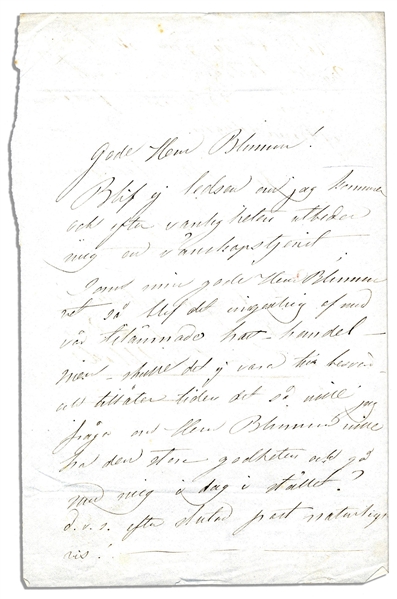 Gode Herr Blumm!
Blif ej ledsen om jag kommer
och efter vänligheten utbeder
mig en vänskapstjenst
min gode Herr Blumm
vet så blef det ingenting af med
vår handel
men skulle det ej vara för besvär-
ligt tillåter tiden det så ville jag
fråga om Herr Blumm ville
ha den stora godheten och gå
med mig i dag i stället?
d.v.s. efter slutad post naturligt-
vis!